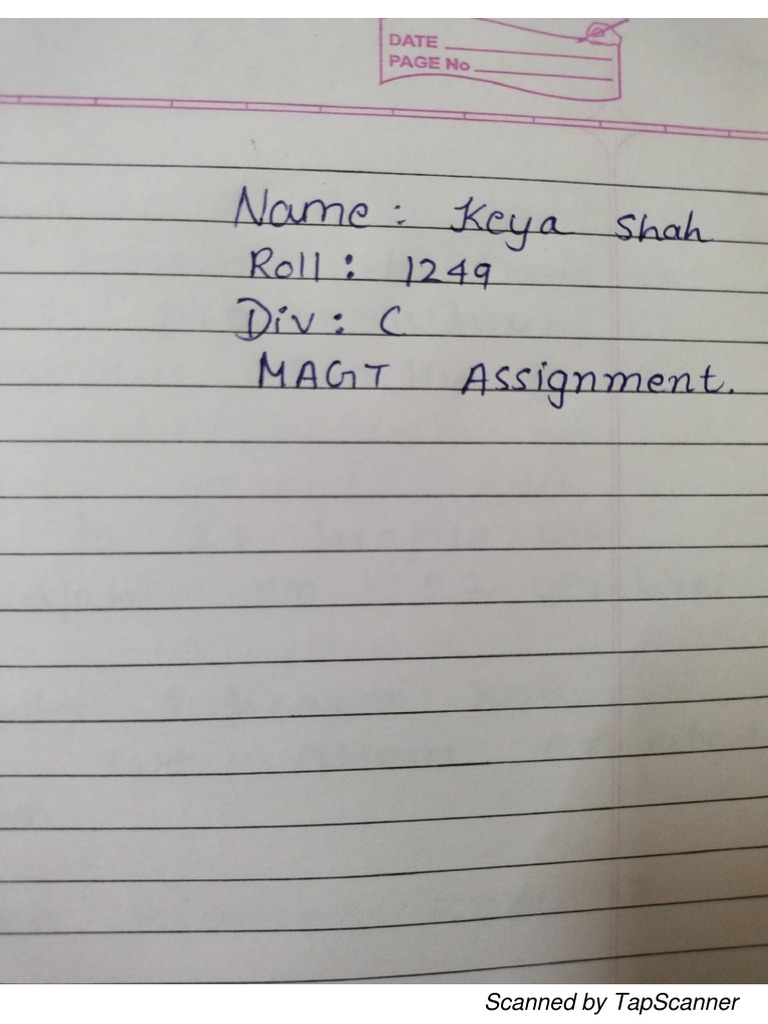 DATE
PAGE No
Name : Keya Shah
Roll : 1249
Div : C
MAGT Assignment.
Scanned by TapScanner